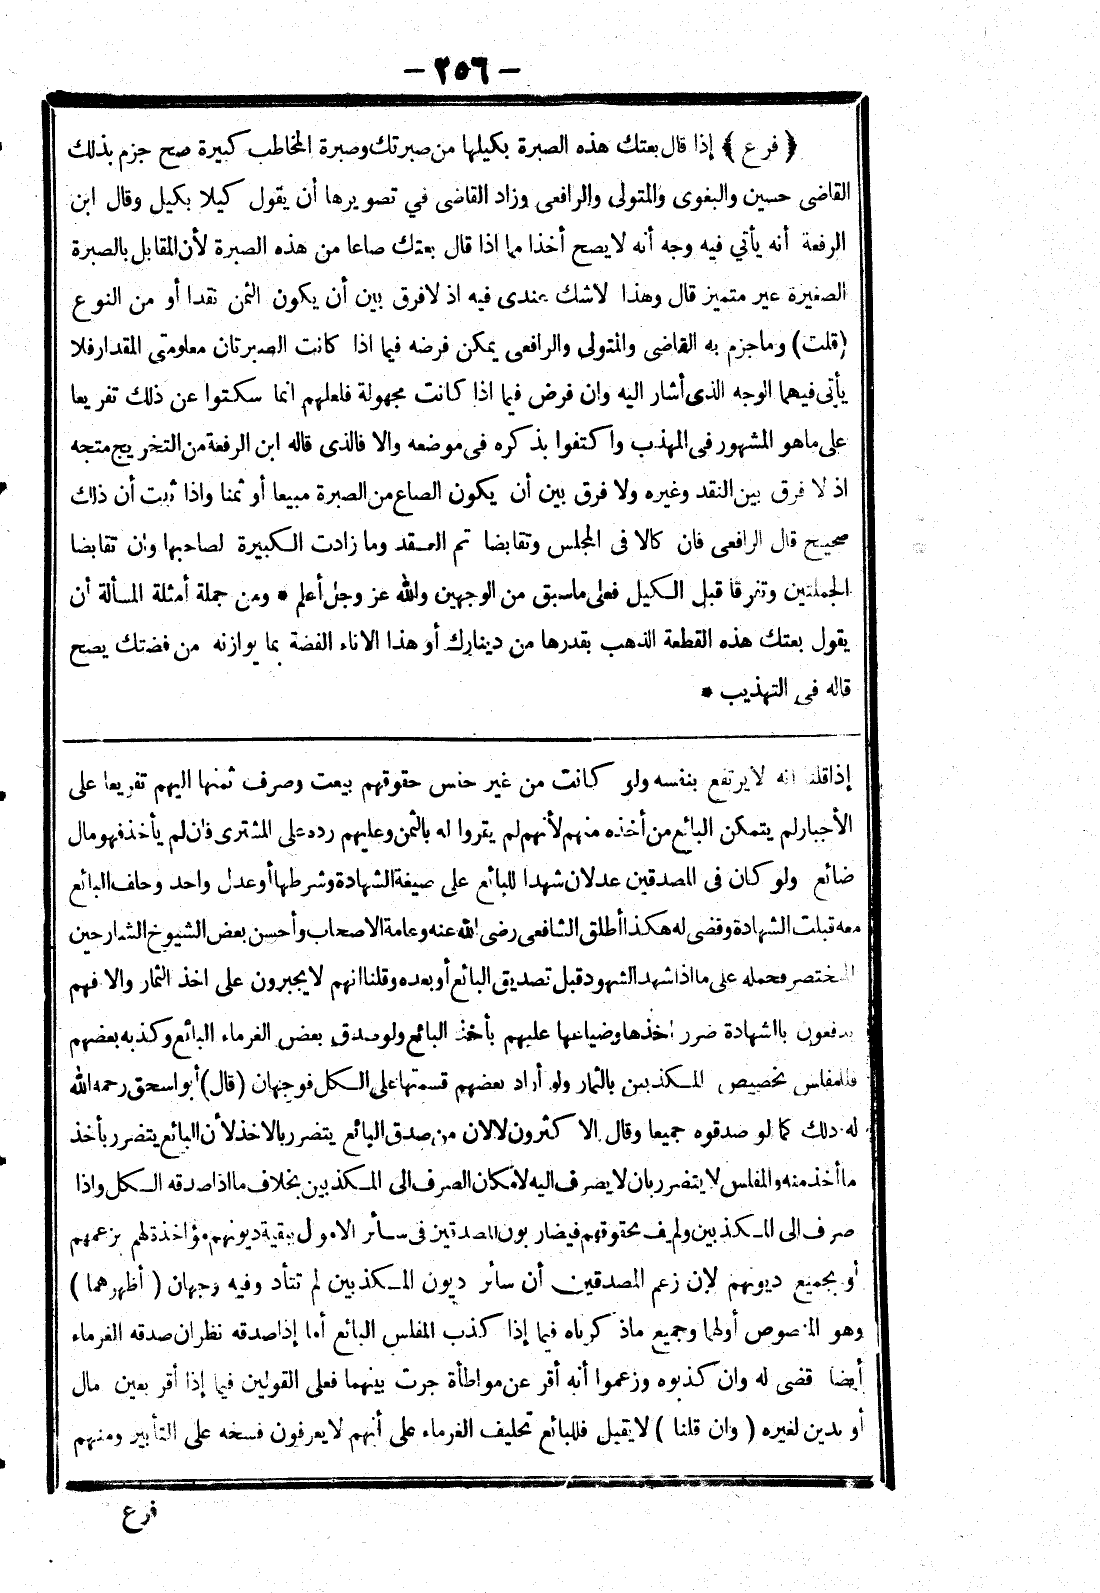 - ٢٥٦ -
﴿ فرع ﴾ إذا قال بعتك هذه الصبرة بكيلها من صبرتك وصبرة المخاطب كبيرة صح جزم بذلك
القاضى حسين والبغوى والمتولى والرافعى وزاد القاضى في تصويرها أن يقول كيلا بكيل وقال ابن
الرفعة أنه يأتي فيه وجه أنه لا يصح أخذا مما اذا قال بعتك صاعا من هذه الصبرة لأن المقابل بالصبرة
الصغيرة غير متميز قال وهذا لاشك عندى فيه اذ لافرق بين أن يكون الثمن نقدا أو من النوع
(قلت) وماجزم به القاضى والمتولى والرافعى يمكن فرضه فيما اذا كانت الصبرتان معلومتى المقدار فلا
يأتى فيهما الوجه الذى أشار اليه وان فرض فيما اذا كانت مجهولة فلعلهم انما سكتوا عن ذلك تفريعا
على ماهو المشهور فى المهذب واكتفوا بذكره فى موضعه والا فالذى قاله ابن الرفعة من التخريج متجه
اذ لا فرق بين النقد وغيره ولا فرق بين أن يكون الصاع من الصبرة مبيعا أو ثمنا واذا ثبت أن ذلك
صحيح قال الرافعى فان كالا فى المجلس وتقابضا تم العقد وما زادت الكبيرة لصاحبها وان تقابضا
الجملتين وتفرقا قبل الكيل فعلى ماسبق من الوجهين والله عز وجل أعلم * ومن جملة أمثلة المسألة أن
يقول بعتك هذه القطعة الذهب بقدرها من دينارك أو هذا الاناء الفضة بما يوازنه من فضتك يصح
قاله فى التهذيب *
إذا قلنا انه لا يرتفع بنفسه ولو كانت من غير جنس حقوقهم بيعت وصرف ثمنها اليهم تفريعا على
الأجبار لم يتمكن البائع من أخذه منهم لأنهم لم يقروا له بالثمن وعليهم رده على المشترى فان لم يأخذ فهو مال
ضائع ولو كان فى المصدقين عدلان شهدا للبائع على صيغة الشهادة وشرطها أو عدل واحد وحلف البائع
معه قبلت الشهادة وقضى له هكذا أطلق الشافعى رضى الله عنه وعامة الاصحاب وأحسن بعض الشيوخ الشارحين
للمختصر فحمله على ما اذا شهد الشهود قبل تصديق البائع أو بعده وقلنا انهم لا يجبرون على اخذ الثمار والا فهم
يدفعون بالشهادة ضرر اخذها وضياعها عليهم بأخذ البائع ولو صدق بعض الغرماء البائع وكذبه بعضهم
فللمفلس تخصيص المكذبين بالثمار ولو أراد بعضهم قسمتها على الكل فوجهان (قال) أبو اسحق رحمه الله
له ذلك كما لو صدقوه جميعا وقال الاكثرون لا لان من صدق البائع يتضرر بالاخذ لأن البائع يتضرر بأخذ
ما أخذ منه والمفلس لا يتضرر بان لا يصرف اليه لامكان الصرف الى المكذبين بخلاف ما اذا صدقه الكل واذا
صرف الى المكذبين ولم يف بحقوقهم فيضاربون المصدقين فى سائر الاموال ببقية ديونهم مؤاخذة لهم بزعمهم
أو بجميع ديونهم لان زعم المصدقين أن سائر ديون المكذبين لم تتأد وفيه وجهان ( أظهرهما )
وهو المنصوص أولهما وجميع ماذكرناه فيما إذا كذب المفلس البائع أما إذا صدقه نظر ان صدقه الغرماء
أيضا قضى له وان كذبوه وزعموا أنه أقر عن مواطأة جرت بينهما فعلى القولين فيما إذا أقر بعين مال
أو بدين لغيره ( وان قلنا ) لا يقبل فللبائع تحليف الغرماء على أنهم لا يعرفون فسخه على التأبير ومنهم
فرع